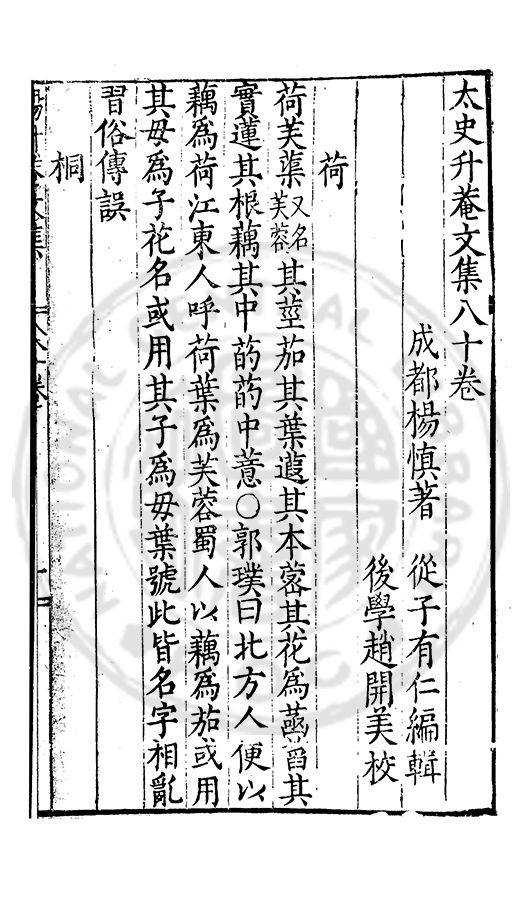 太史升菴文集八十卷
成都楊慎著　從子有仁編輯
後學趙開美校
荷
荷芙蕖又名芙蓉其莖茄其葉蕸其本蔤其花為菡萏其
實蓮其根藕其中菂菂中薏○郭璞曰北方人便以
藕為荷江東人呼荷葉為芙蓉蜀人以藕為茄或用
其母為子花名或用其子為母葉號此皆名字相亂
習俗傳誤
桐